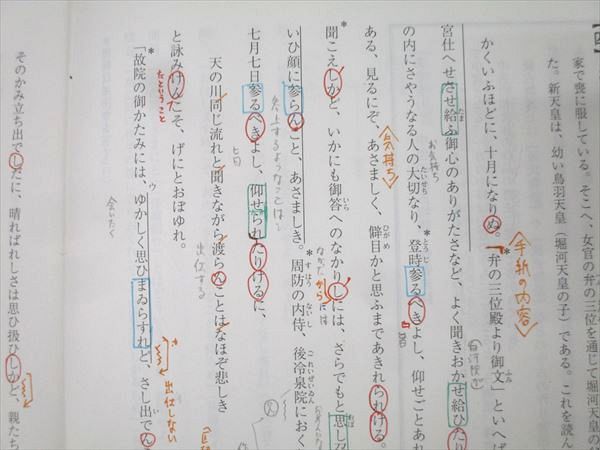 【四
家で喪に服している。そこへ、女官の弁の三位を通じて白河
た。新天皇は、幼い鳥羽天皇(堀河天皇の子)である。これを読ん
かくいふほどに、十月になりぬ。「弁の三位殿より御文」といへば
宮仕へせさせ給ふ御心のありがたさなど、よく聞きおかせ給ひたり
の内にさやうなる人の大切なり、登時参るべきよし、仰せごとあれ
ある、見るにぞ、あさましく、僻目かと思ふまであきれられける。
聞こえしかど、いかにも御答へのなかりしには、さらでもと思し召
いひ顔に参らんこと、あさましき。周防の内侍、後冷泉院におく
七月七日参るべきよし、仰せられたりけるに、
天の川同じ流れと聞きながら渡らんことはなほぞ悲しき
と詠みけんこそ、げにとおぼゆれ。
「故院の御かたみには、ゆかしく思ひまゐらすれど、さし出でん
そのかみ立ち出でしだに、晴ればれしさは思ひ扱ひしかど、親たち
手紙の内容
お気持ち
気持ち
七日
出仕する
たということ
会いたく
出仕しない